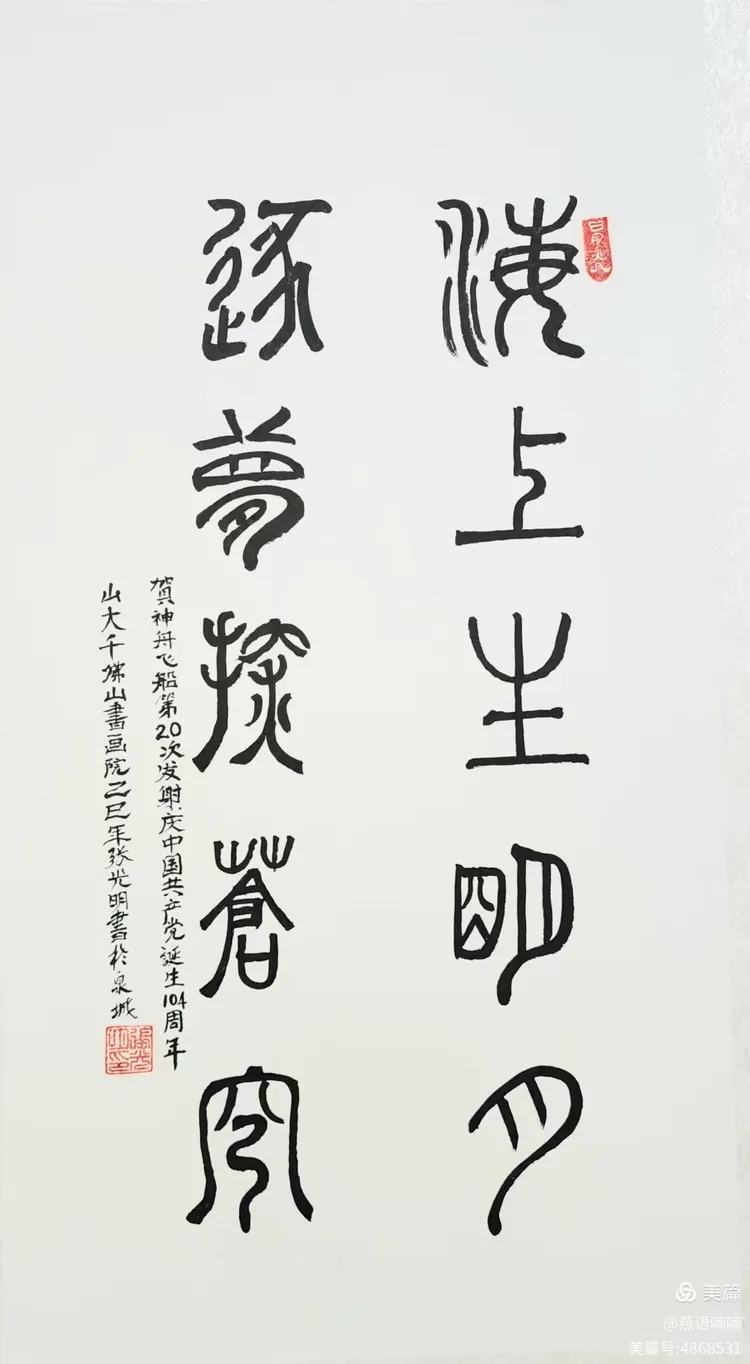 海上生明月
逐梦探蒼穹
賀神舟飞船第20次发射庆中国共产党誕生104周年
山大千佛山書画院乙巳年张光明書於泉城
美篇
@燕语喃喃
美篇号:4868531